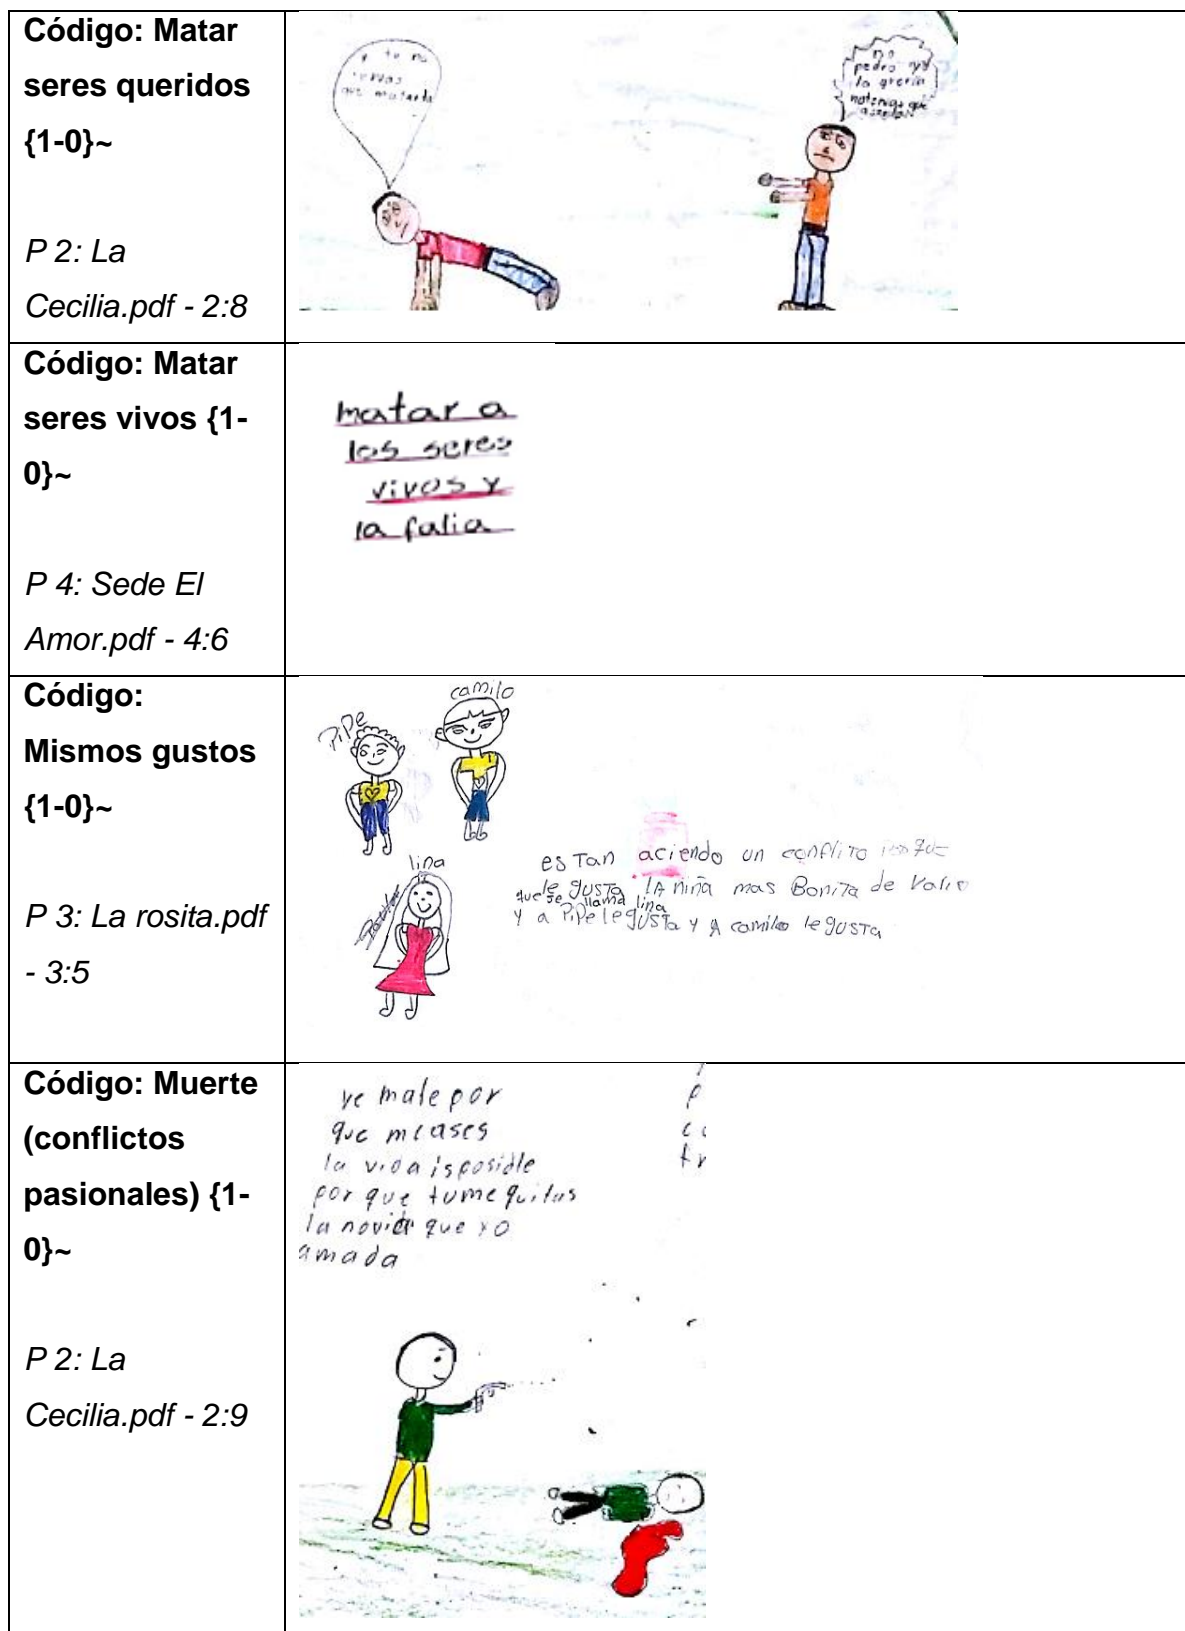 Código: Matar
seres queridos
{1-0}~
P 2: La
Cecilia.pdf - 2:8
y tu no
que matarla
no
pedro yo
la queria
Código: Matar
seres vivos {1-
0}~
P 4: Sede El
Amor.pdf - 4:6
matar a
los seres
vivos y
la falia
Código:
Mismos gustos
{1-0}~
P 3: La rosita.pdf
- 3:5
PiPe
camilo
lina
es Tan aciendo un conflito
le gusta lA niña mas BoniTa de
que se llama lina
y a PiPe le gusta y A camilo le gusta
Código: Muerte
(conflictos
pasionales) {1-
0}~
P 2: La
Cecilia.pdf - 2:9
ye mate por
que mcases
la vida isposidle
por que tume quitas
la novia que yo
amada